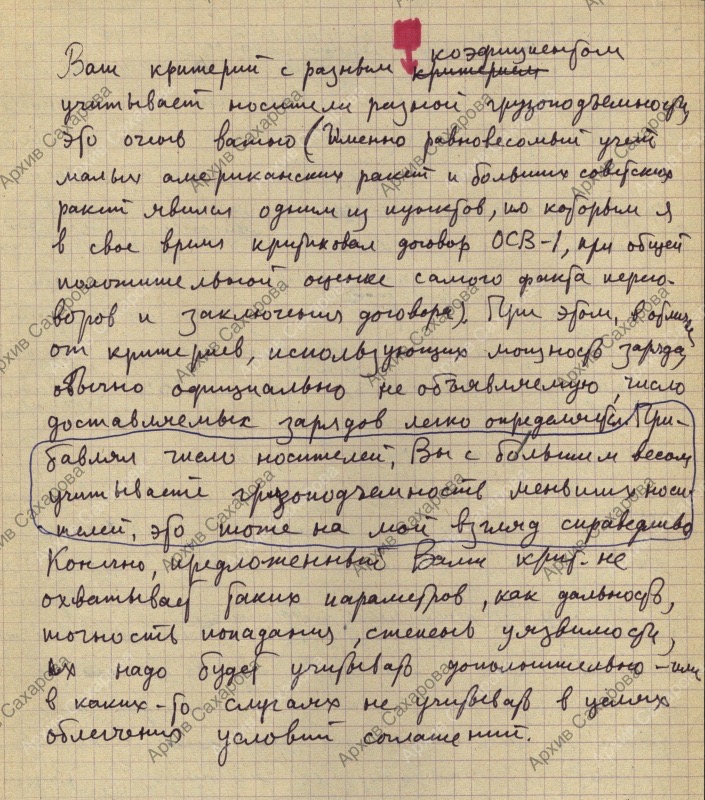 коэфициентом
Ваш критерий с разным критерием
учитывает носители разной грузоподъемности,
это очень важно (Именно равновесомый учет
малых американских ракет и больших советских
ракет явился одним из пунктов, по которым я
в свое время критиковал договор ОСВ-1, при общей
положительной оценке самого факта перего-
воров и заключения договора). При этом, в отличие
от критериев, использующих мощность заряда,
обычно официально не объявляемую, число
доставляемых зарядов легко определяется. При-
бавляя число носителей, Вы с большим весом
учитываете грузоподъемность меньших носи-
телей, это тоже на мой взгляд справедливо
Конечно, предложенный Вами крит. не
охватывает таких параметров, как дальность,
точность попадания, степень уязвимости,
их надо будет учитывать дополнительно – или
в каких-то случаях не учитывать в целях
облегчения условий соглашений.
Архив Сахарова